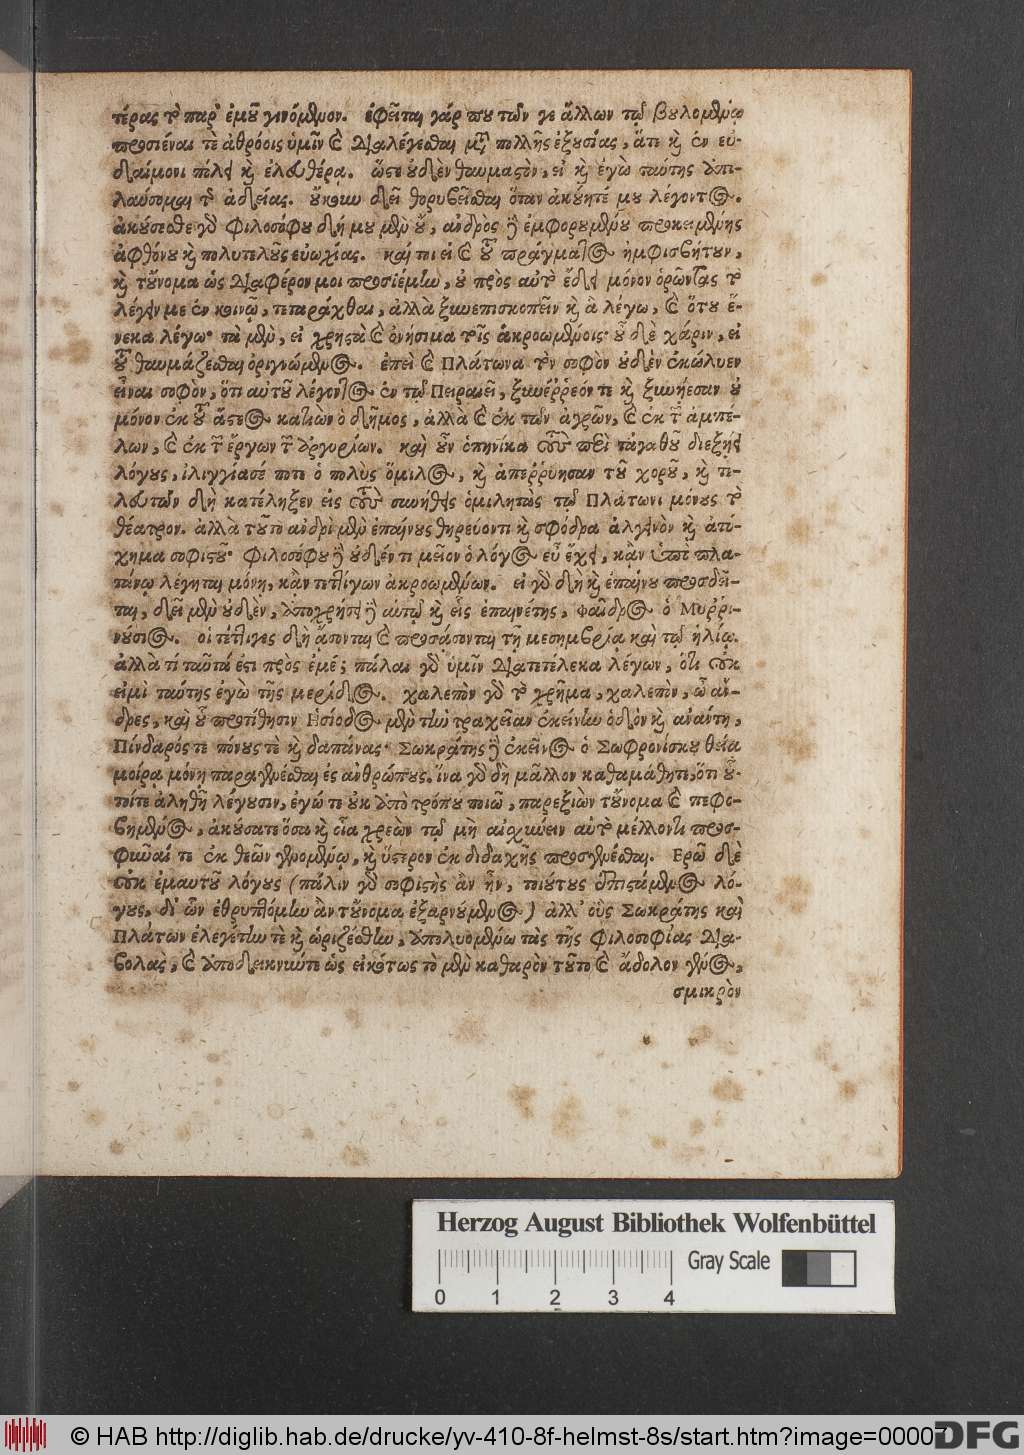 τέρας τὸ παρ' ἐμοῦ γινόμενον. ἐφεῖται γάρ που τῶν γε ἄλλων τῷ βουλομένῳ
προσιέναι τε ἀθρόοις ὑμῖν καὶ διαλέγεσθαι μετὰ πολλῆς ἐξουσίας, ἅτε καὶ ἐν εὐ-
δαίμονι πόλει καὶ ἐλευθέρᾳ. ὥστε οὐδὲν θαυμαστὸν, εἰ καὶ ἐγὼ ταύτης ἀπο-
λαύσομαι τῆς ἀδείας. οὔκουν δεῖ θορυβεῖσθαι ὅταν ἀκούητέ μου λέγοντος.
ἀκούεσθε γὰρ φιλοσόφου δή μου μὲν οὔ, ἀνδρὸς δὲ ἐμφορουμένου προκειμένης
ἀφθόνου καὶ πολυτελοῦς εὐωχίας. καί τοι εἰ καὶ τοῦ πράγματος ἠμφισβήτουν,
καὶ τοὔνομα ὡς διαφέρον μοι προσιέμην, οὐ πρὸς αὐτὸ ἔδει μόνον ὁρῶντας τὸ
λέγειν με ἐν κοινῷ, τεταράχθαι, ἀλλὰ ξυνεπισκοπεῖν καὶ ἃ λέγω, καὶ ὅτου ἕ-
νεκα λέγω· τὰ μὲν, εἰ χρηστὰ καὶ ὀνήσιμα τοῖς ἀκροωμένοις· οὗ δὲ χάριν, εἰ
τοῦ θαυμάζεσθαι ὀριγνώμενος. ἐπεὶ καὶ Πλάτωνα τὸν σοφὸν οὐδὲν ἐκώλυεν
εἶναι σοφὸν, ὅτι αὐτοῦ λέγοντος ἐν τῷ Πειραιεῖ, ξυνέῤῥεόν τε καὶ ξυνῄεσαν οὐ
μόνον ἐκ τοῦ ἄστεος κατιὼν ὁ δῆμος, ἀλλὰ καὶ ἐκ τῶν ἀγρῶν, καὶ ἐκ τῶν ἀμπέ-
λων, καὶ ἐκ τῶν ἔργων τῶν ἀργυρίων. καὶ οὖν ὁπηνίκα τοὺς περὶ τἀγαθοῦ διεξῄει
λόγους, ἰλιγγίασέ ποτε ὁ πολὺς ὅμιλος, καὶ ἀπεῤῥύησαν τοῦ χοροῦ, καὶ τε-
λευτῶν δὴ κατέληξεν εἰς τοὺς συνήθεις ὁμιλητὰς τῷ Πλάτωνι μόνους τὸ
θέατρον. ἀλλὰ τοῦτο ἀνδρὶ μὲν ἐπαίνους θηρεύοντι καὶ σφόδρα ἀλγεινὸν καὶ ἀτύ-
χημα σοφιστοῦ· φιλοσόφου δὲ οὐδέν τι μεῖον ὁ λόγος εὖ ἔχει, κἂν ὑπὸ πλα-
τάνῳ λέγηται μόνῃ, κἂν τεττίγων ἀκροωμένων. εἰ γὰρ δὴ καὶ ἐπαίνου προσδεῖ-
ται, δεῖ μὲν οὐδὲν, ἀποχρήσει δὲ αὐτῷ καὶ εἷς ἐπαινέτης, Φαῖδρος ὁ Μυῤῥι-
νούσιος. οἱ τέττιγες δὴ ᾄσονται καὶ προσᾴσονται τῇ μεσημβρίᾳ καὶ τῷ ἡλίῳ.
ἀλλὰ τί ταῦτά ἐστι πρὸς ἐμέ; πάλαι γὰρ ὑμῖν διατετέλεκα λέγων, ὅτι οὐκ
εἰμὶ ταύτης ἐγὼ τῆς μερίδος. χαλεπὸν γὰρ τὸ χρῆμα, χαλεπὸν, ὦ ἄν-
δρες, καὶ οὗ προτίθησιν Ἡσίοδος μὲν τὴν τραχεῖαν ἐκείνην ὁδὸν καὶ ἀνάντη,
Πίνδαρός τε πόνους τὲ καὶ δαπάνας· Σωκράτης δὲ ἐκεῖνος ὁ Σωφρονίσκου θείᾳ
μοίρᾳ μόνῃ παραγενέσθαι ἐς ἀνθρώπους. ἵνα γὰρ δὴ μᾶλλον καταμάθητε, ὅτι οὗ-
τοί τε ἀληθῆ λέγουσιν, ἐγώ τε οὐκ ἀπὸ τρόπου ποιῶ, παρεξιὼν τοὔνομα καὶ πεφο-
βημένος, ἀκούσατε ὅσα καὶ οἷα χρεὼν τῷ μὴ αἰσχύνειν αὐτὸ μέλλοντι προσ-
φῦναί τε ἐκ θεῶν γενομένῳ, καὶ ὕστερον ἐκ διδαχῆς προσγενέσθαι. Ἐρῶ δὲ
οὐκ ἐμαυτοῦ λόγους (πάλιν γὰρ σοφιστὴς ἂν ἦν, τοιούτους ἐπιστάμενος λό-
γους, δι' ὧν ἐθρυπτόμην ἂν τοὔνομα ἐξαρνούμενος) ἀλλ' οὓς Σωκράτης καὶ
Πλάτων ἐλεγέτην τε καὶ ὡριζέσθην, ἀπολυομένω τὰς τῆς φιλοσοφίας δια-
βολὰς, καὶ ἀποδεικνύντε ὡς εἰκότως τὸ μὲν καθαρὸν τοῦτο καὶ ἄδολον γένος,
σμικρὸν
Herzog August Bibliothek Wolfenbüttel
Gray Scale
0 1 2 3 4
© HAB http://diglib.hab.de/drucke/yv-410-8f-helmst-8s/start.htm?image=00007
DFG